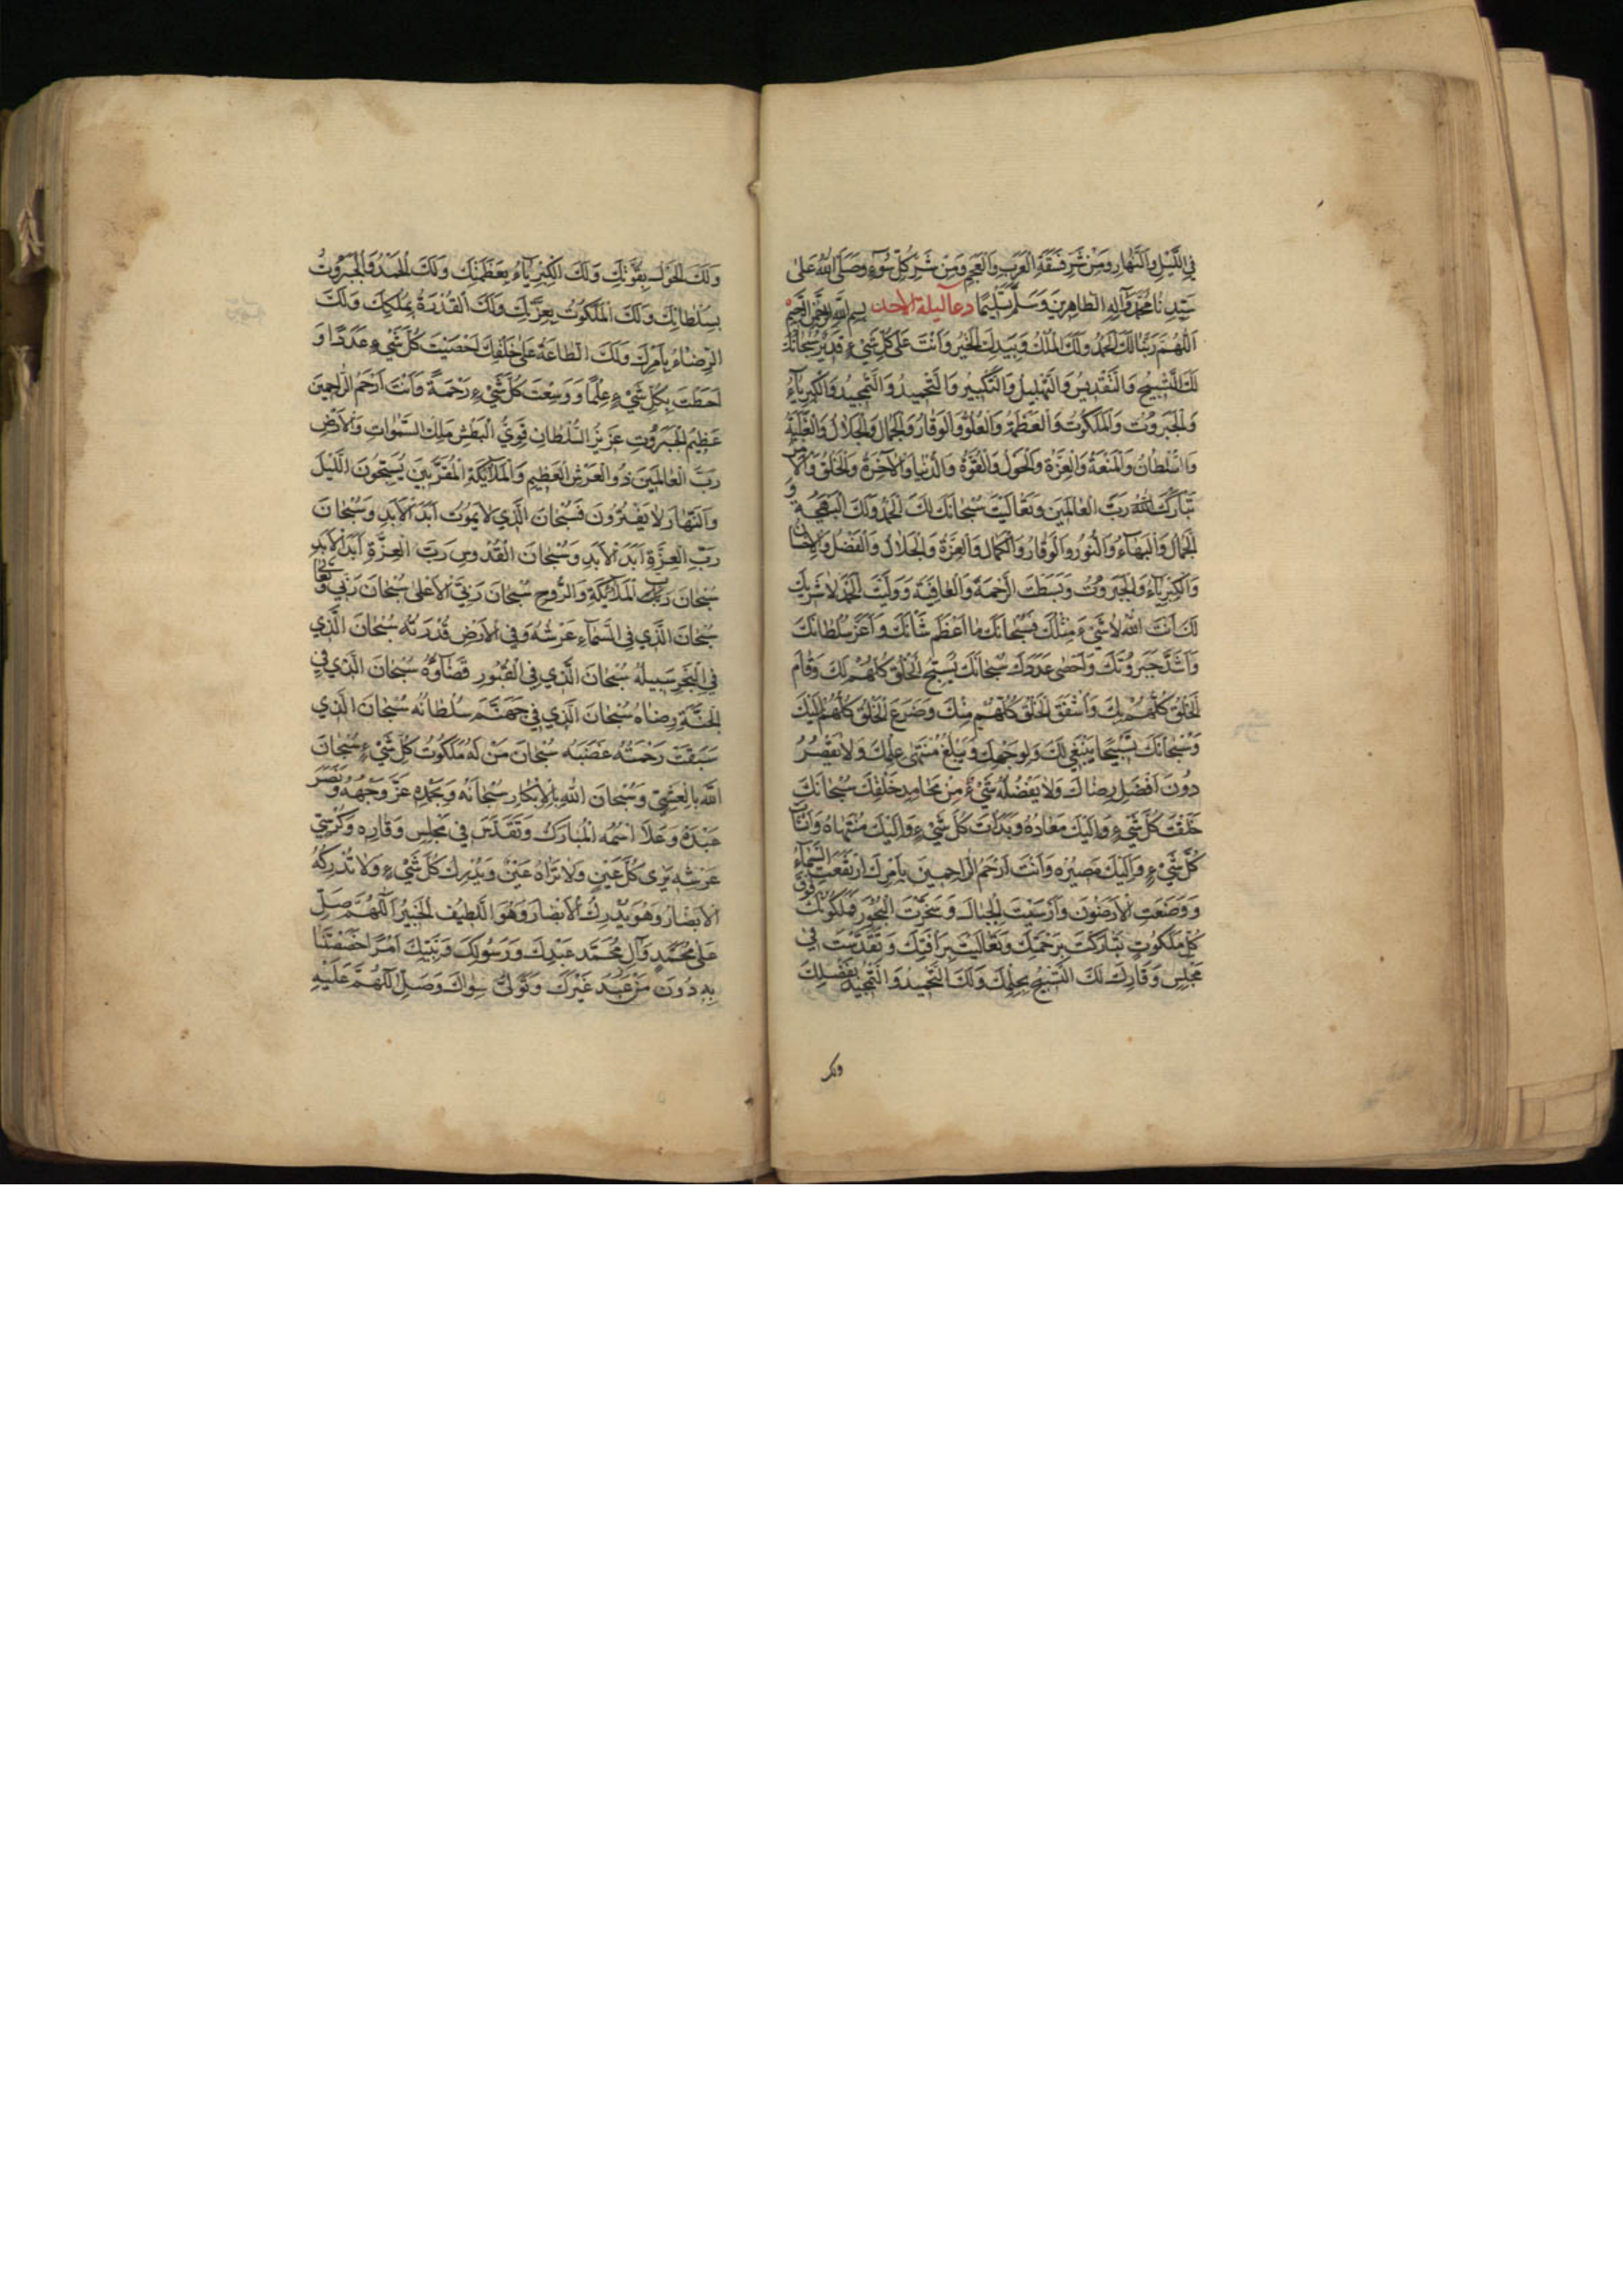 فِي اللَّيْلِ وَالنَّهَارِ وَمِنْ شَرِّ فَسَقَةِ الْعَرَبِ وَالْعَجَمِ وَمِنْ شَرِّ كُلِّ سُوءٍ وَصَلَّى اللهُ عَلَى
سَيِّدِنَا مُحَمَّدٍ وَآلِهِ الطَّاهِرِينَ وَسَلَّمَ تَسْلِيمًا دعاء ليلة الاحد بِسْمِ اللهِ الرَّحْمنِ الرَّحِيمِ
اَللّهُمَّ رَبَّنَا لَكَ الْحَمْدُ وَلَكَ الْمُلْكُ وَبِيَدِكَ الْخَيْرُ وَأَنْتَ عَلَى كُلِّ شَيْءٍ قَدِيرٌ سُبْحَانَكَ
لَكَ التَّسْبِيحُ وَالتَّقْدِيسُ وَالتَّهْلِيلُ وَالتَّكْبِيرُ وَالتَّحْمِيدُ وَالتَّمْجِيدُ وَالْكِبْرِيَاءُ
وَالْجَبَرُوتُ وَالْمَلَكُوتُ وَالْعَظَمَةُ وَالْعُلُوُّ وَالْوَقَارُ وَالْجَمَالُ وَالْجَلَالُ وَالْغَلَبَةُ
وَالسُّلْطَانُ وَالْمَنَعَةُ وَالْعِزَّةُ وَالْحَوْلُ وَالْقُوَّةُ وَالدُّنْيَا وَالْآخِرَةُ وَالْخَلْقُ وَالْأَمْرُ
تَبَارَكْتَ اللهُ رَبَّ الْعَالَمِينَ وَتَعَالَيْتَ سُبْحَانَكَ لَكَ الْحَمْدُ وَلَكَ الْبَهْجَةُ وَ
الْجَمَالُ وَالْبَهَاءُ وَالنُّورُ وَالْوَقَارُ وَالْكَمَالُ وَالْعِزَّةُ وَالْجَلَالُ وَالْفَضْلُ وَالْإِحْسَانُ
وَالْكِبْرِيَاءُ وَالْجَبَرُوتُ وَبَسَطْتَ الرَّحْمَةَ وَالْعَافِيَةَ وَوَلَّيْتَ الْحَمْدَ لَا شَرِيكَ
لَكَ أَنْتَ اللهُ لَا شَيْءَ مِثْلُكَ فَسُبْحَانَكَ مَا أَعْظَمَ شَأْنَكَ وَأَعَزَّ سُلْطَانَكَ
وَأَشَدَّ جَبَرُوتَكَ وَأَحْصَى عَدَدَكَ سُبْحَانَكَ يُسَبِّحُ الْخَلْقُ كُلُّهُمْ لَكَ وَقَامَ
الْخَلْقُ كُلُّهُمْ بِكَ وَأَشْفَقَ الْخَلْقُ كُلُّهُمْ مِنْكَ وَضَرَعَ الْخَلْقُ كُلُّهُمْ إِلَيْكَ
وَسُبْحَانَكَ تَسْبِيحًا يَنْبَغِي لَكَ وَلِوَجْهِكَ وَيَبْلُغُ مُنْتَهَى عِلْمِكَ وَلَا يَقْصُرُ
دُونَ أَفْضَلِ رِضَاكَ وَلَا يَفْضُلُهُ شَيْءٌ مِنْ مَحَامِدِ خَلْقِكَ سُبْحَانَكَ
خَلَقْتَ كُلَّ شَيْءٍ وَإِلَيْكَ مَعَادُهُ وَبَدَأْتَ كُلَّ شَيْءٍ وَإِلَيْكَ مُنْتَهَاهُ وَأَنْشَأْتَ
كُلَّ شَيْءٍ وَإِلَيْكَ مَصِيرُهُ وَأَنْتَ أَرْحَمُ الرَّاحِمِينَ بِأَمْرِكَ ارْتَفَعَتِ السَّمَاءُ
وَوُضِعَتِ الْأَرَضُونَ وَأُرْسِيَتِ الْجِبَالُ وَسُجِّرَتِ الْبُحُورُ فَمَلَكُوتُكَ فَوْقَ
كُلِّ مَلَكُوتٍ تَبَارَكْتَ بِرَحْمَتِكَ وَتَعَالَيْتَ بِرَأْفَتِكَ وَتَقَدَّسْتَ فِي
مَجْلِسِ وَقَارِكَ لَكَ التَّسْبِيحُ بِحِلْمِكَ وَلَكَ التَّحْمِيدُ وَالتَّمْجِيدُ بِفَضْلِكَ
ولك
وَلَكَ الْحَوْلُ بِقُوَّتِكَ وَلَكَ الْكِبْرِيَاءُ بِعَظَمَتِكَ وَلَكَ الْحَمْدُ وَالْجَبَرُوتُ
بِسُلْطَانِكَ وَلَكَ الْمَلَكُوتُ بِعِزَّتِكَ وَلَكَ الْقُدْرَةُ بِمُلْكِكَ وَلَكَ
الرِّضَاءُ بِأَمْرِكَ وَلَكَ الطَّاعَةُ عَلَى خَلْقِكَ أَحْصَيْتَ كُلَّ شَيْءٍ عَدَدًا وَ
أَحَطْتَ بِكُلِّ شَيْءٍ عِلْمًا وَوَسِعْتَ كُلَّ شَيْءٍ رَحْمَةً وَأَنْتَ أَرْحَمُ الرَّاحِمِينَ
عَظِيمُ الْجَبَرُوتِ عَزِيزُ السُّلْطَانِ قَوِيُّ الْبَطْشِ مَلِكُ السَّمَوَاتِ وَالْأَرْضِ
رَبُّ الْعَالَمِينَ ذُو الْعَرْشِ الْعَظِيمِ وَالْمَلَائِكَةِ الْمُقَرَّبِينَ يُسَبِّحُونَ اللَّيْلَ
وَالنَّهَارَ لَا يَفْتُرُونَ فَسُبْحَانَ الَّذِي لَا يَمُوتُ أَبَدَ الْأَبَدِ وَسُبْحَانَ
رَبِّ الْعِزَّةِ أَبَدَ الْأَبَدِ وَسُبْحَانَ الْقُدُّوسِ رَبِّ الْعِزَّةِ أَبَدَ الْأَبَدِ
سُبْحَانَ رَبِّ الْمَلَائِكَةِ وَالرُّوحِ سُبْحَانَ رَبِّيَ الْأَعْلَى سُبْحَانَ رَبِّي وَتَعَالَى
سُبْحَانَ الَّذِي فِي السَّمَاءِ عَرْشُهُ وَفِي الْأَرْضِ قُدْرَتُهُ سُبْحَانَ الَّذِي
فِي الْبَحْرِ سَبِيلُهُ سُبْحَانَ الَّذِي فِي الْقُبُورِ قَضَاؤُهُ سُبْحَانَ الَّذِي فِي
الْجَنَّةِ رِضَاهُ سُبْحَانَ الَّذِي فِي جَهَنَّمَ سُلْطَانُهُ سُبْحَانَ الَّذِي
سَبَقَتْ رَحْمَتُهُ غَضَبَهُ سُبْحَانَ مَنْ لَهُ مَلَكُوتُ كُلِّ شَيْءٍ سُبْحَانَ
اللهِ بِالْعَشِيِّ وَسُبْحَانَ اللهِ بِالْإِبْكَارِ سُبْحَانَهُ وَبِحَمْدِهِ عَزَّ وَجْهُهُ وَنَصَرَ
عَبْدَهُ وَعَلَا اسْمُهُ الْمُبَارَكُ وَتَقَدَّسَ فِي مَجْلِسِ وَقَارِهِ وَكُرْسِيِّ
عَرْشِهِ يَرَى كُلَّ عَيْنٍ وَلَا تَرَاهُ عَيْنٌ وَيُدْرِكُ كُلَّ شَيْءٍ وَلَا تُدْرِكُهُ
الْأَبْصَارُ وَهُوَ يُدْرِكُ الْأَبْصَارَ وَهُوَ اللَّطِيفُ الْخَبِيرُ اللّهُمَّ صَلِّ
عَلَى مُحَمَّدٍ وَآلِ مُحَمَّدٍ عَبْدِكَ وَرَسُولِكَ وَنَبِيِّكَ أَمْرًا اخْتَصَصْتَنَا
بِهِ دُونَ مَنْ عَبَدَ غَيْرَكَ وَتَوَلَّى سِوَاكَ وَصَلِّ اللّهُمَّ عَلَيْهِ